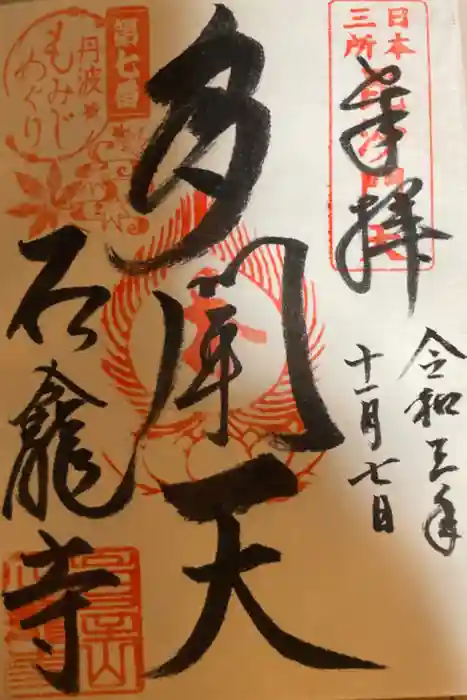 日本
三所
毘沙門天
奉拝
令和三年
十一月七日
多聞天
第七番
丹波
もみじ
めぐり
石龕寺